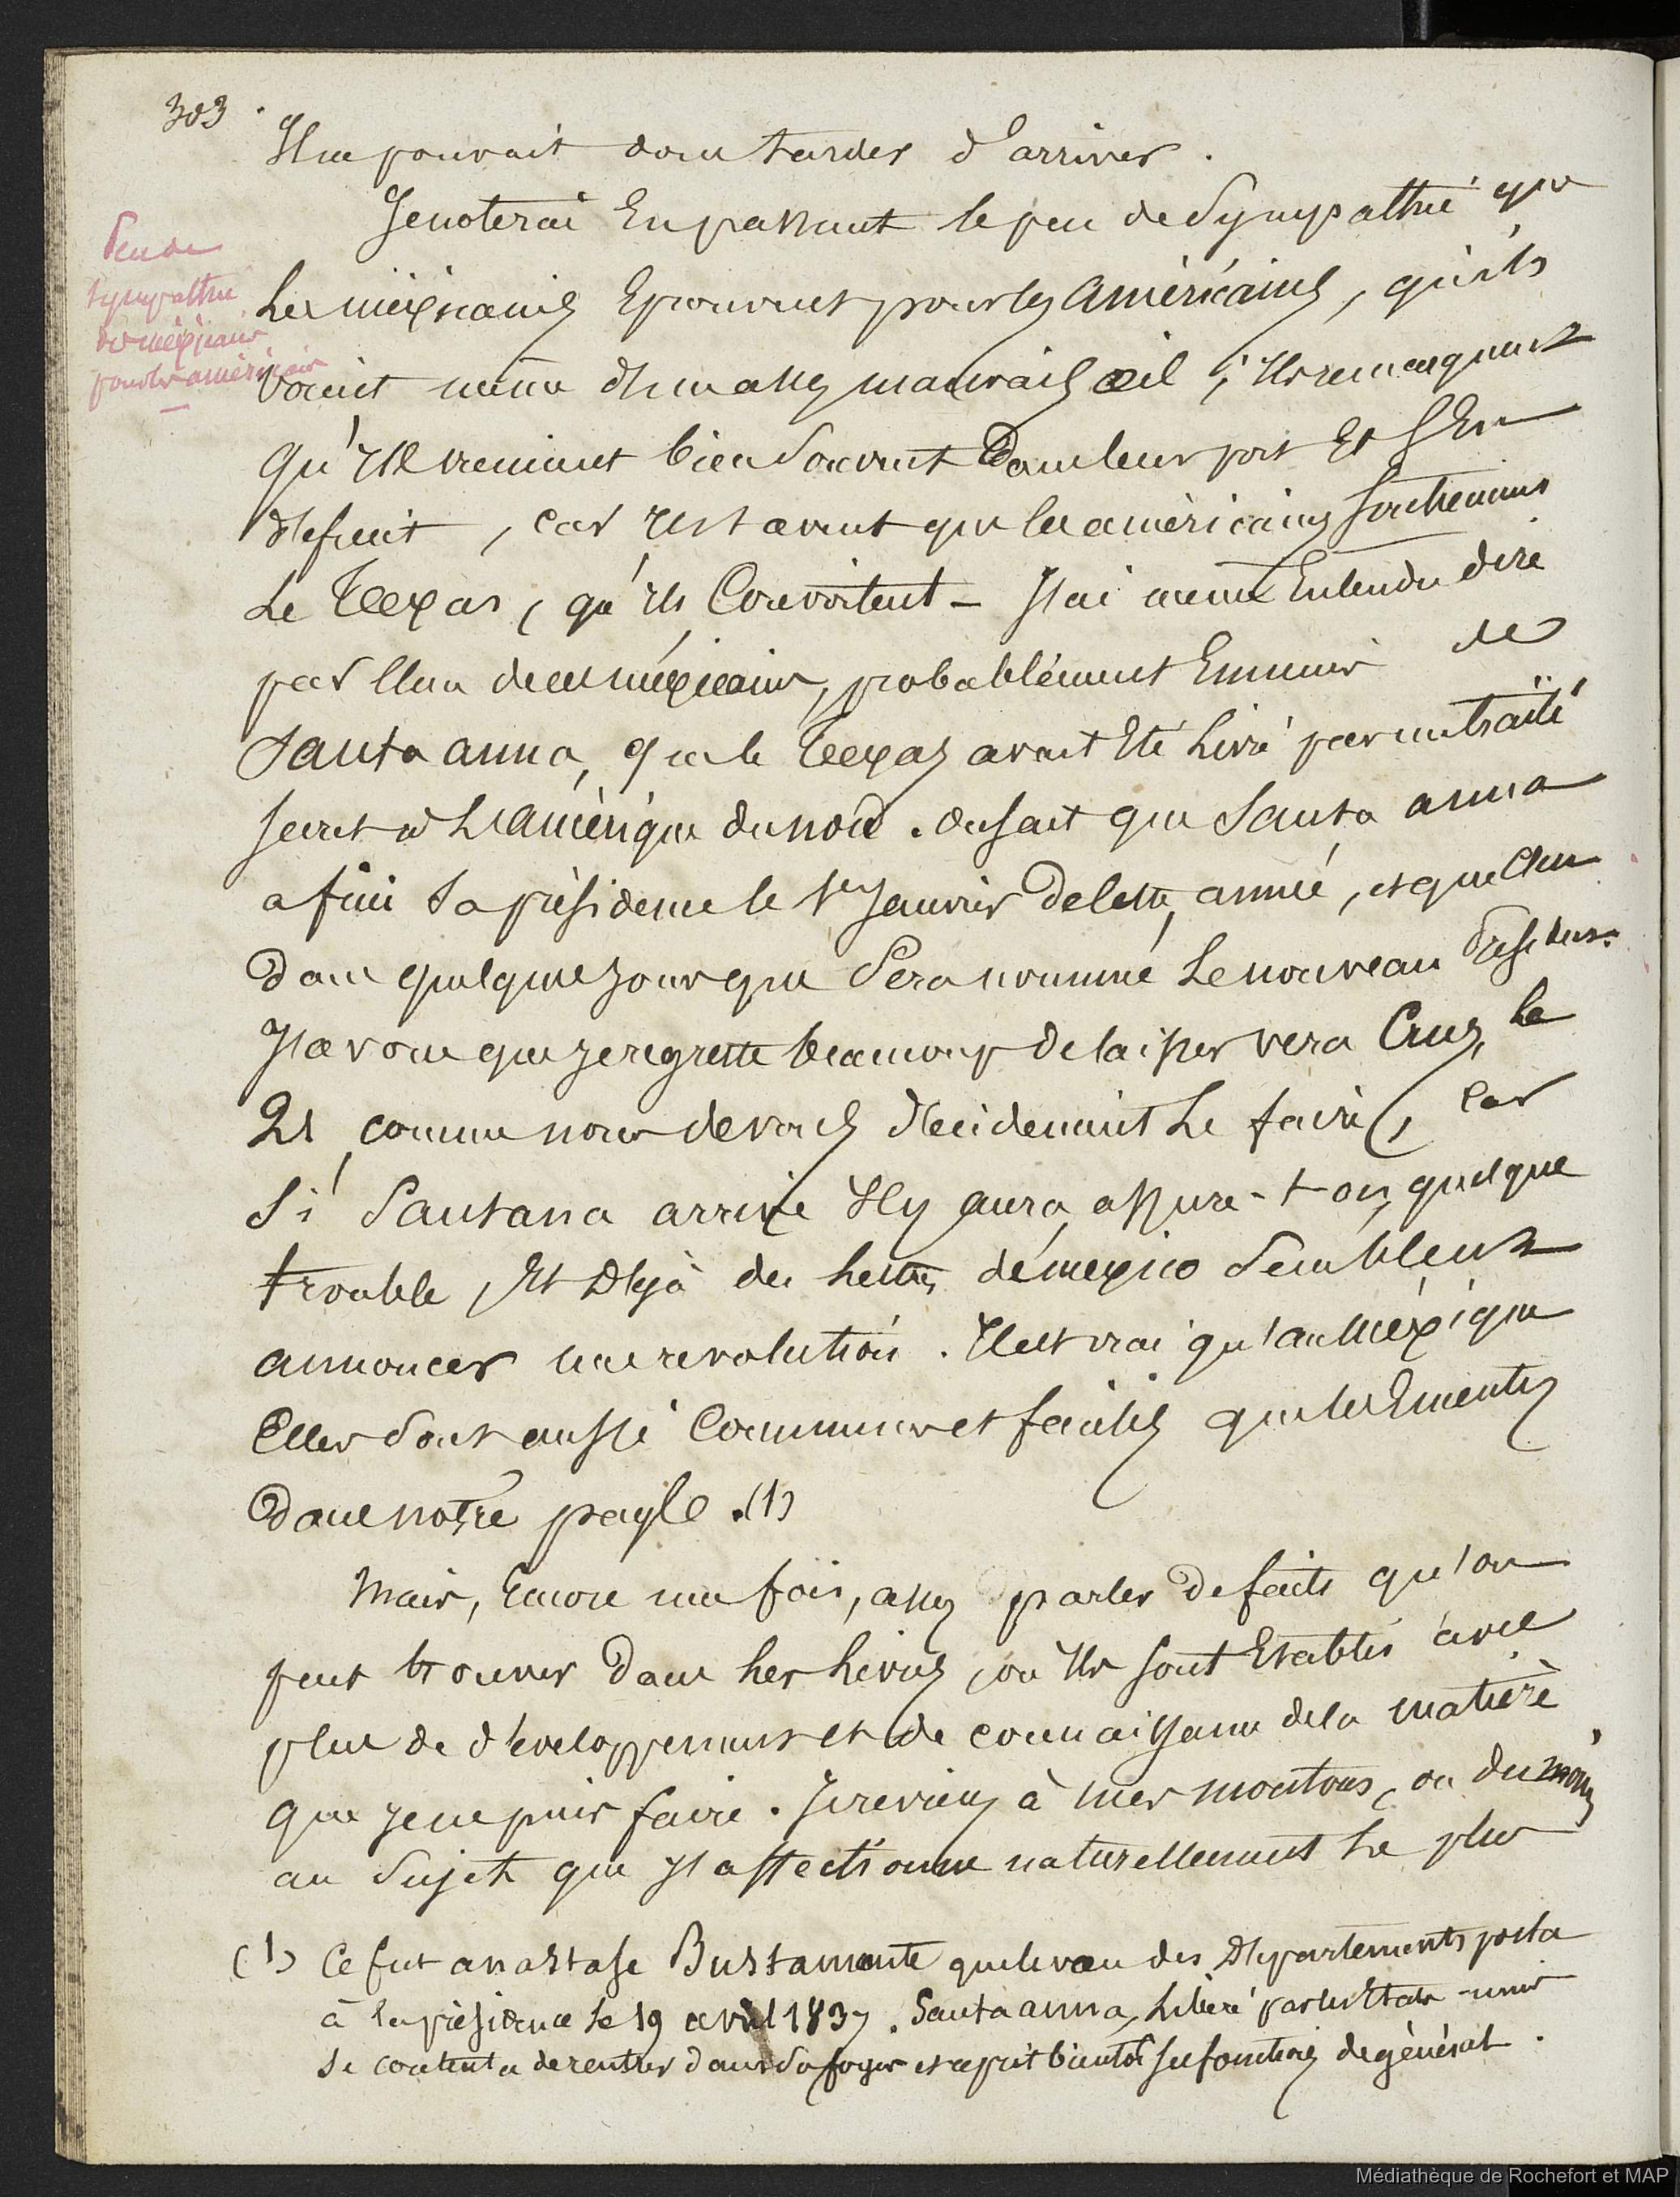 303.
Il ne pouvait donc tarder d'arriver.
Je noterai En passant le peu de Sympathie que
Peu de
sympathie
des méxicains
pour les américains
Les méxicains Eprouvent pour les Américains, qu'ils
voient même d'un assez mauvais œil ; Ils remarquent
qu'Ils viennent bien Souvent Dans leur port Et S'En
défient, car Ils savent que les américains soutiennent
Le Texas, qu'Ils Convoitent - J'ai même Entendu dire
par l'un de ces méxicains, probablement Ennemi de
Santa anna, que le Texas avait Eté Livré par un traité
secret à L'Amérique du nord. on sait que Santa anna
a fini Sa présidence le 1er Janvier De cette année, et que c'est
Dans quelques jours que Sera nommé Le nouveau Président.
J'avoue que je regrette beaucoup de laisser vera Cruz, le
21, comme nous devons décidement Le faire, car
Si Santana arrive Il y aura, assure-t-on, quelque
trouble, Et Déjà des Lettres de mexico Semblent
annoncer une revolution. Il est vrai qu'au Méxique
Elles Sont aussi Communes et faciles que les Emeutes
Dans notre pays. (1)
Mais, Encore une fois, assez parler De faits qu'on
peut trouver Dans Les Livres, où Ils sont Etablis avec
plus de développements et de connaissance de la matière
que je ne puis faire. Je reviens à mes moutons, ou du moins
au Sujet que j'affectionne naturellement Le plus
(1) Ce fut anastase Bustamente que le vœu des Départements porta
à la présidence le 19 avril 1837. Santa anna, Libéré par les Etats-unis
Se contenta de rentrer dans Ses foyers et reprit bientôt ses fonctions de général.
Médiathèque de Rochefort et MAP